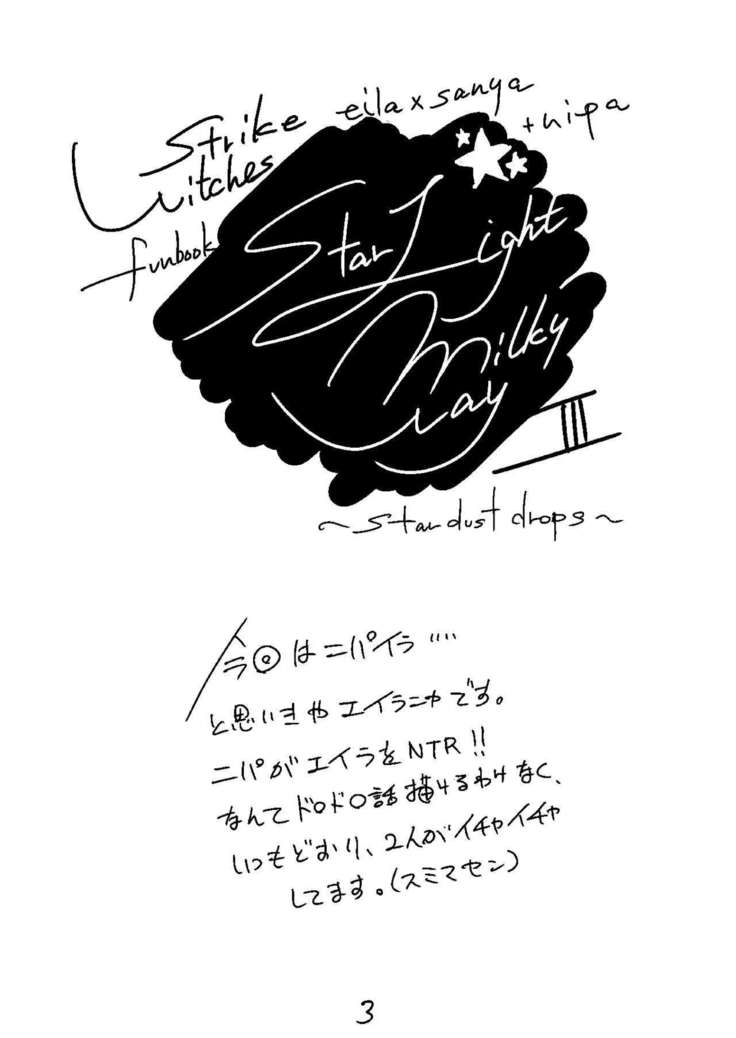 Strike
Witches
eila×sanya
+nipa
funbook
StarLight
Milky
Way
III
～stardust drops～
今回はニパイラ‥‥
と思いきやエイラーニャです。
ニパがエイラをNTR!!
なんてドロドロ話描けるわけなく、
いつもどおり、2人がイチャイチャ
してます。(スミマセン)
3